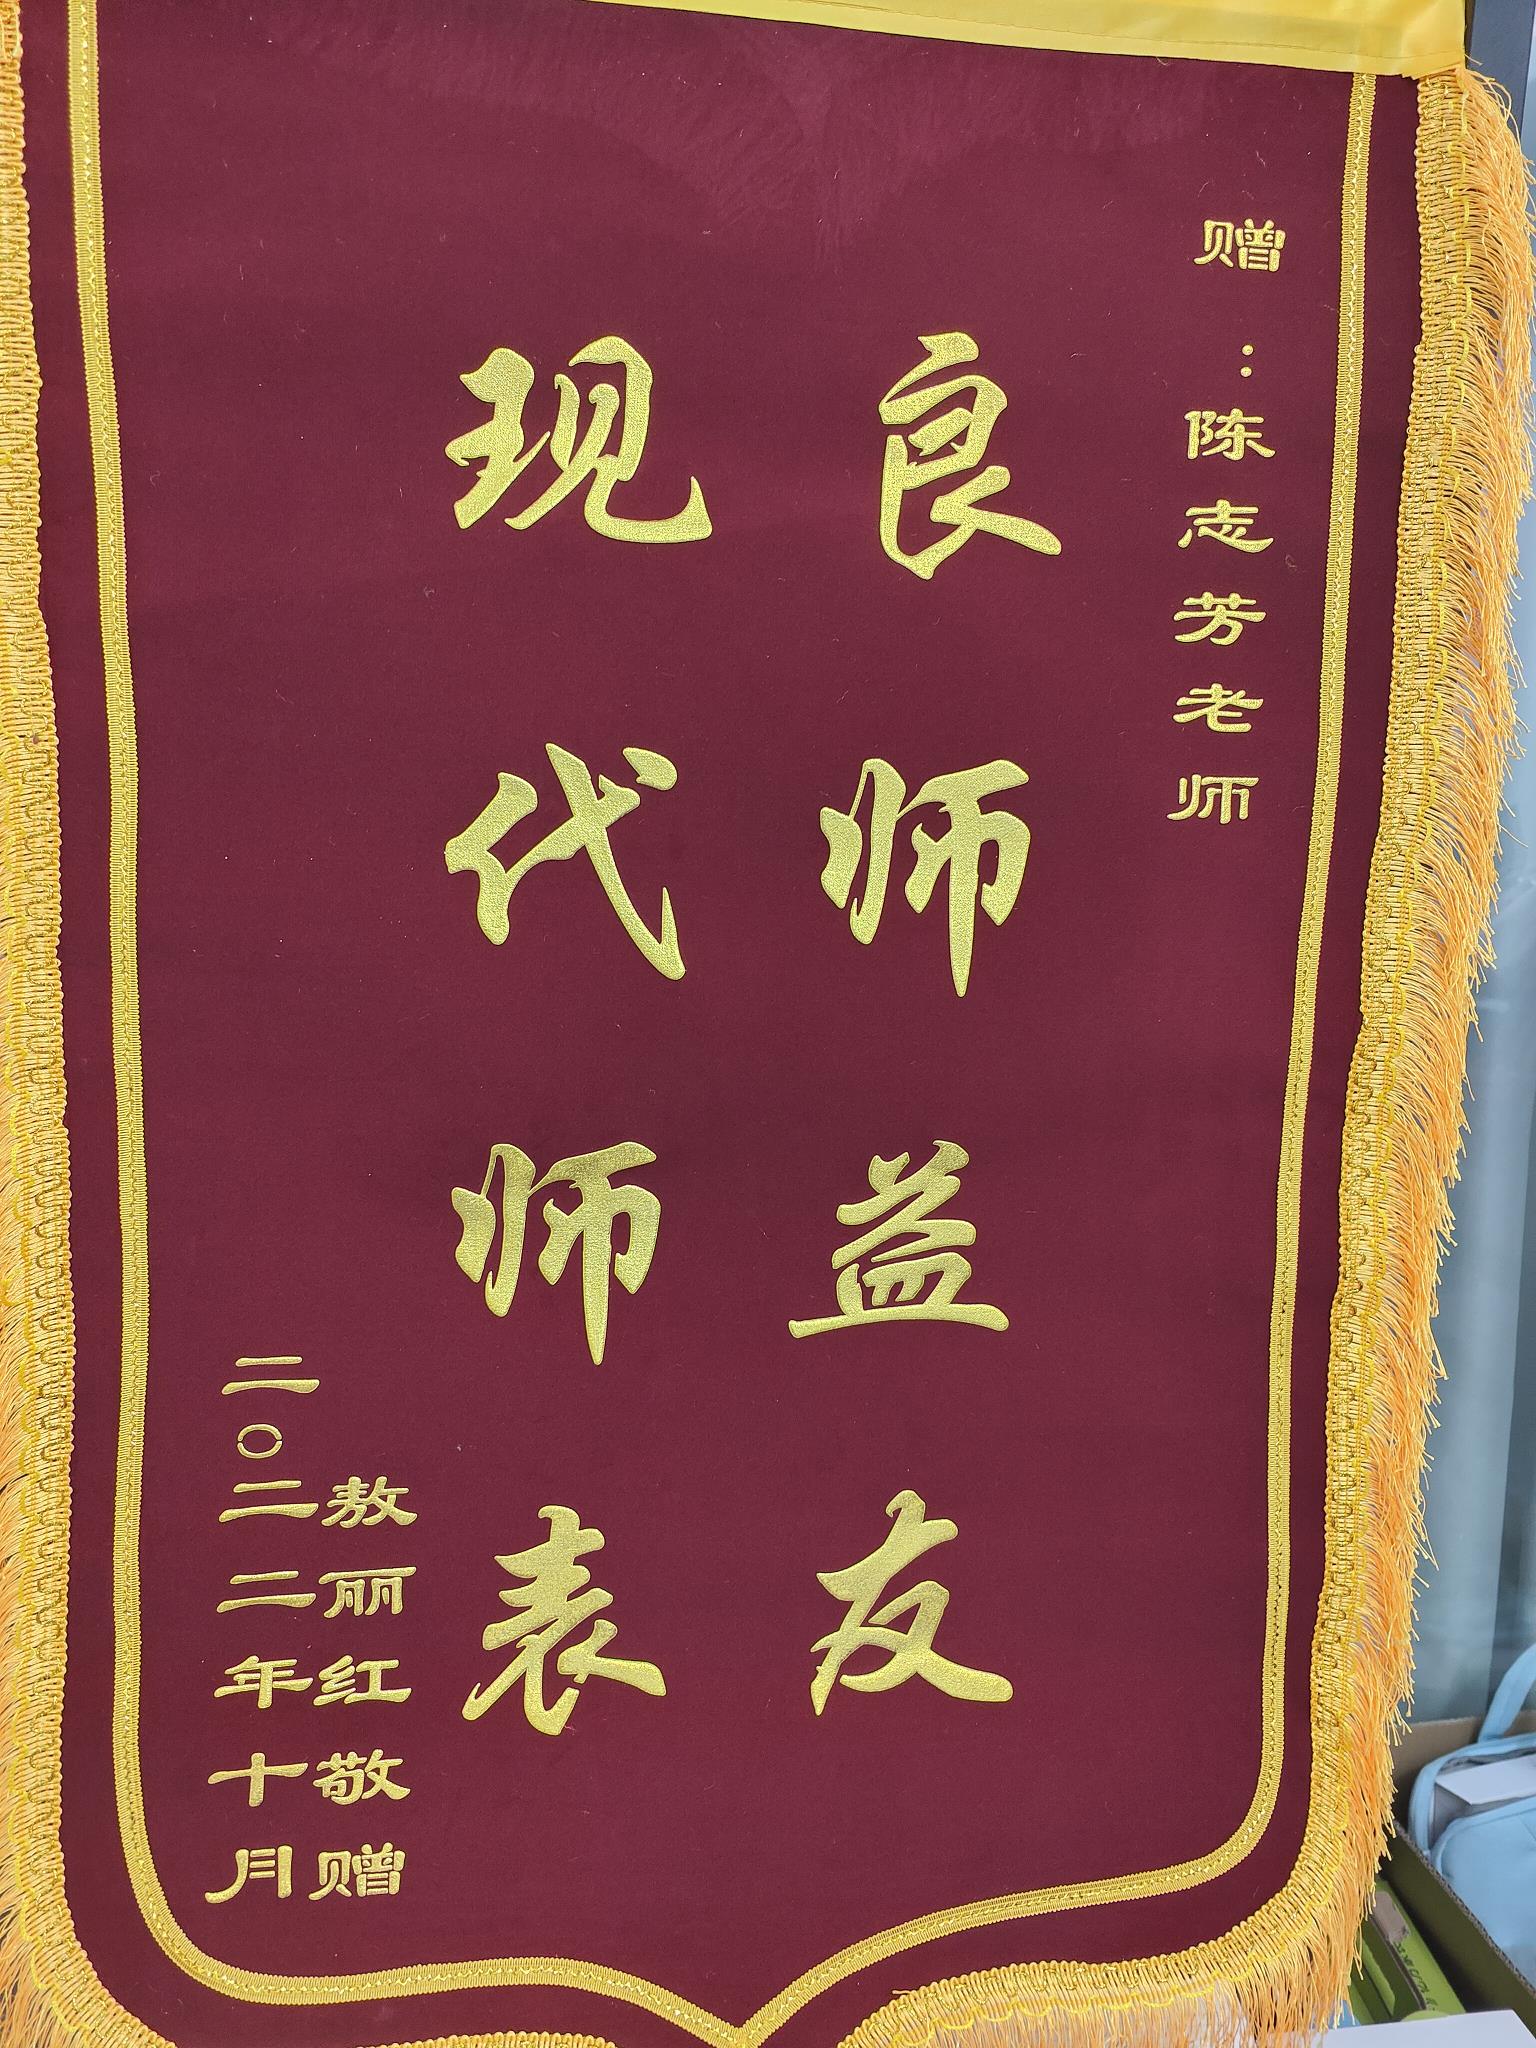 赠:陈志芳老师
良师益友
现代师表
敖丽红敬赠
二〇二二年十月